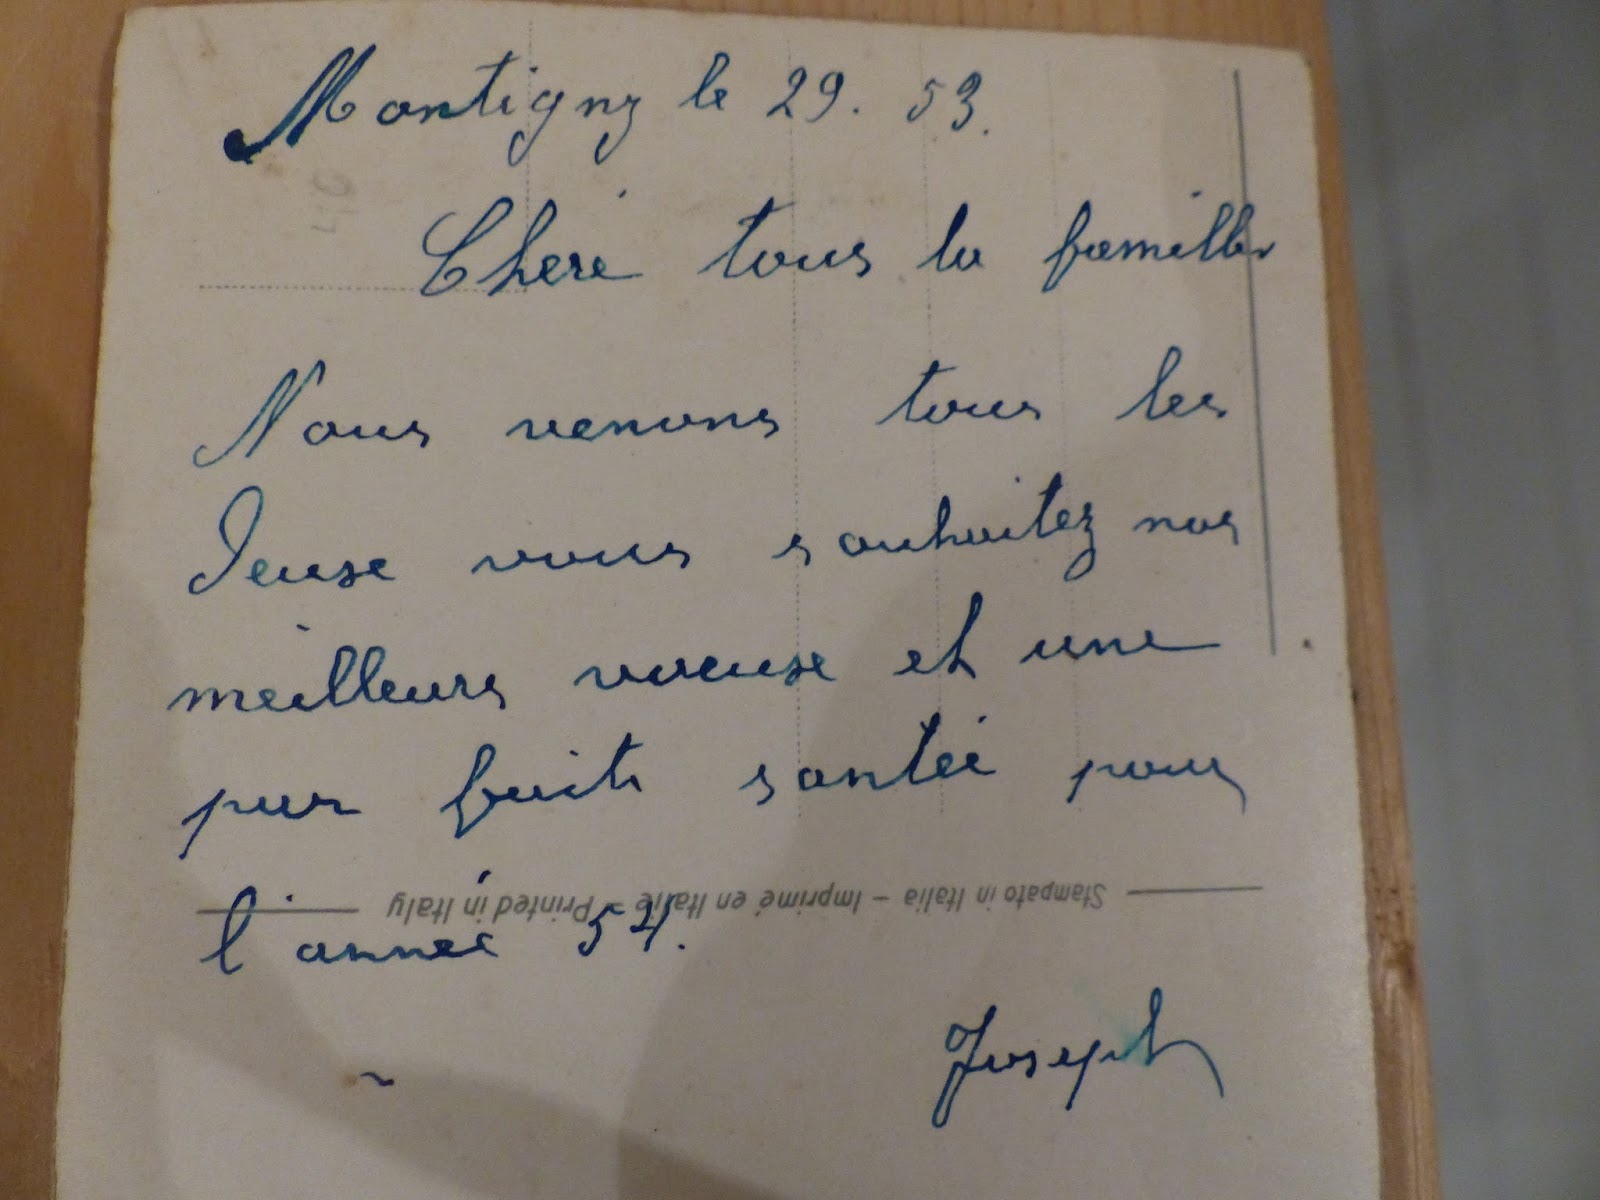 Montigny le 29. 53.
Cheré tous la famille
Nous venons tous les
Deuse vous souhaitez nos
meilleurs voeuse et une
par faite santée pour
l'année 54.
Stampato in Italia – Imprimé en Italie – Printed in Italy
Joseph